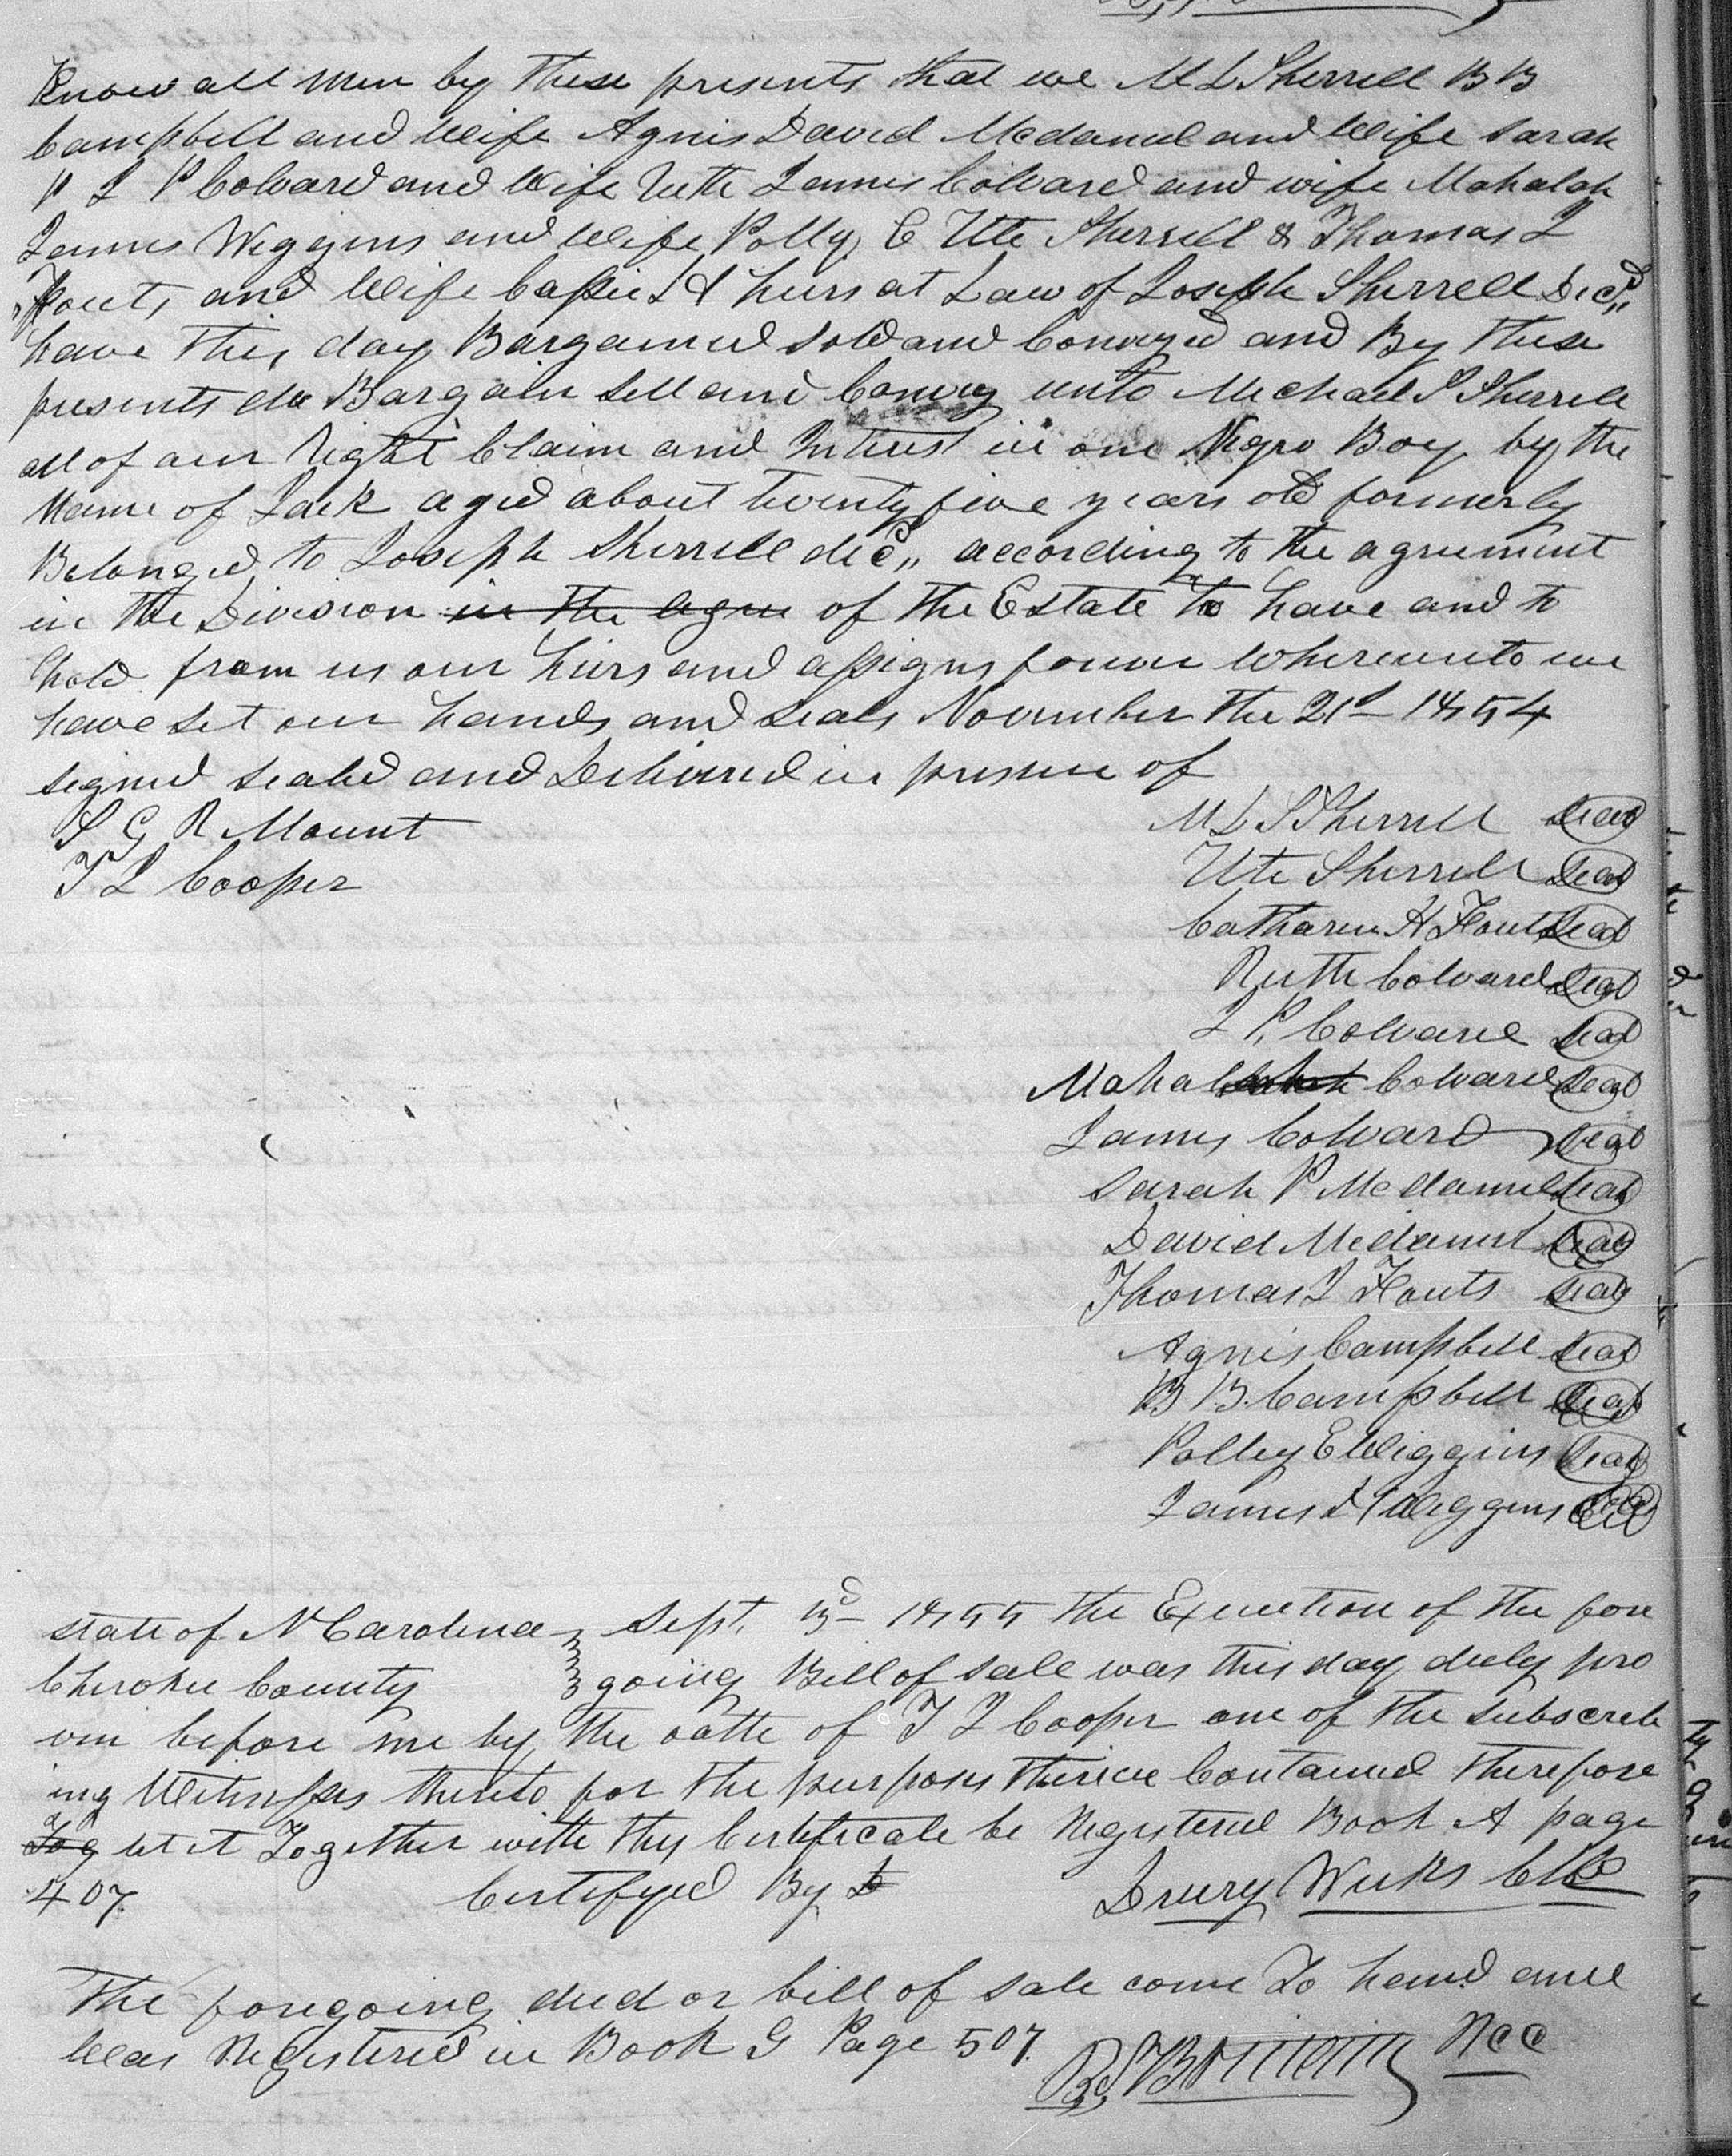 Know all men by these presents that we M L Sherrell B B
Campbell and Wife Agnis David Mcdaniel and Wife Sarah
P J P Colvard and Wife Ruth James Colvard and wife Mahalah
James Wiggins and Wife Polly E Ute Sherrell & Thomas J
Fouts and Wife Cassie H heirs at Law of Joseph Sherrell Decd
have this day Bargained sold and Conveyed and By these
presents do Bargain sell and Convey unto Michael S Sherrell
all of our Right Claim and Intrest in one Negro Boy by the
Name of Jack aged about twenty five years old formerly
Belonged to Joseph Sherrell decd according to the agreement
in the Division in the agree of the Estate to have and to
hold from us our heirs and assigns forever Whereunto we
have set our hands and seals November the 21st 1854
signed sealed and Delivered in presence of
S G R Mount
T J Cooper
M L S Sherrell Seal
Ute Sherrell Seal
Catharin H Fouts Seal
Ruth Colvard Seal
J P Colvard Seal
Mahal Colvard Seal
James Colvard Seal
Sarah P Mcdaniel Seal
David Mcdaniel Seal
Thomas J Fouts Seal
Agnis Campbell Seal
B B Campbell Seal
Polley E Wiggins Seal
James H Wiggins
state of N Carolina Sept. 3d 1855 the Execution of the fore
Cherokee County going Bill of sale was this day duly pro
ven before me by the oath of T J Cooper one of the subscrib
ing Witnesses thereto for the purposes therein Contained therefore
let it Together with this Certificate be Registered Book A page
407. Certifyed By D Drury Weeks Clk
The foregoing deed or bill of sale come To hand and
Was Registered in Book G Page 507.